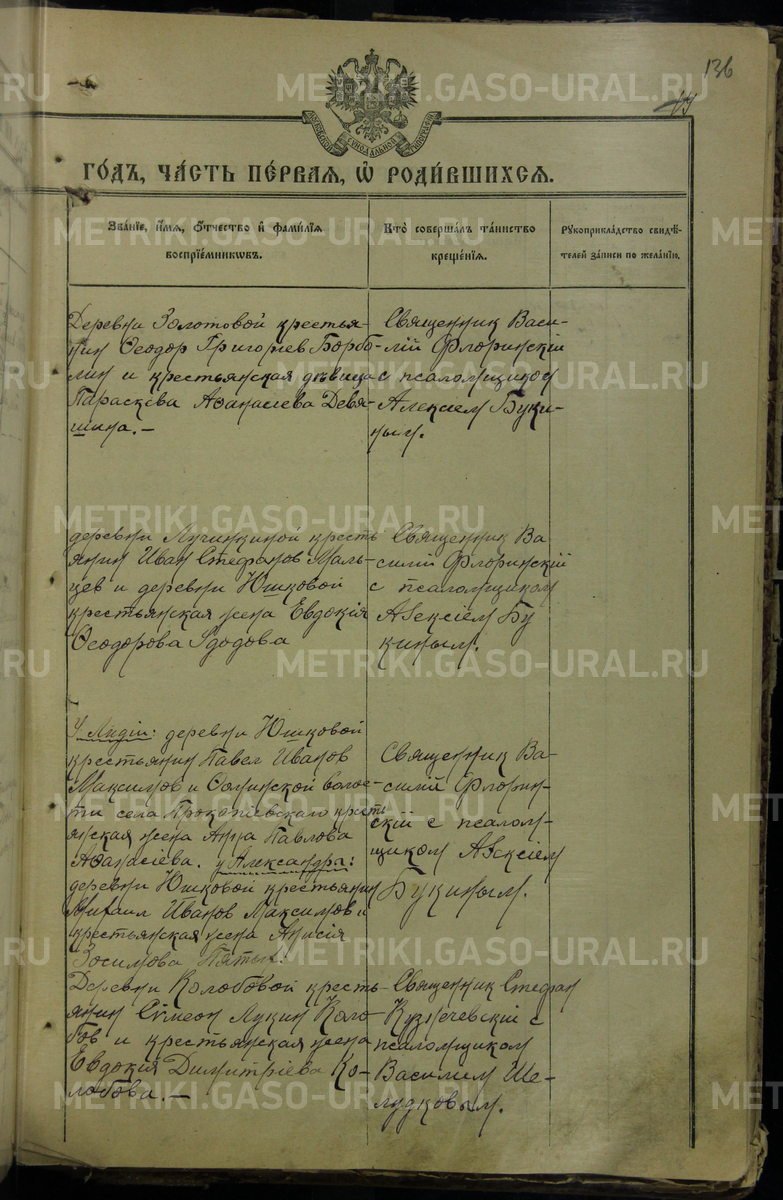 136
МОСКОВСКОЙ СѴНОДАЛЬНОЙ ТИПОГРАФІИ
ГОДЪ, ЧАСТЬ ПЕРВАЯ, Ѿ РОДИВШИХСЯ.
Званіе, имя, отчество и фамилія
воспріемниковъ.
Кто совершалъ таинство
крещенія.
Рукоприкладство свидѣ-
телей записи по желанію.
Деревни Золотовой крестья-
нин Ѳеодор Григорiев Борбо
лин и крестьянская дѣвица
Параскева Аѳанасiева Девя-
шина.-
Священник Васи-
лій Флоринскій
с псаломщиком
Алексіем Буки-
ным.
деревни Лучинкиной кресть
янин Иван Стефанов Маль-
цев и деревни Юшковой
крестьянская жена Евдокія
Ѳеодорова Удодова
Священник Ва
силій Флоринскій
с псаломщиком
Алексіем Бу
киным.
У Лидіи: деревни Юшковой
крестьянин Павел Иванов
Максимов и волос-
ти села Прокопіевскаго кресть
янская жена Анна Павлова
Аѳанасіева. у Александры:
деревни Юшковой крестьянин
Михаил Иванов Максимов и
крестьянская жена Анисія
Зосимова Пятых.
Священник Ва-
силій Флорин-
скій с псалом-
щиком Алексіем
Букиным.
Деревни Колобовой кресть-
янин Сѵмеон Лукин Коло-
бов и крестьянская жена
Евдокія Димитріева Ко-
лобова.-
Священник Стефан
Кузнечевскій с
псаломщиком
Василием Ше-
лудковым.
METRIKI.GASO-URAL.RU